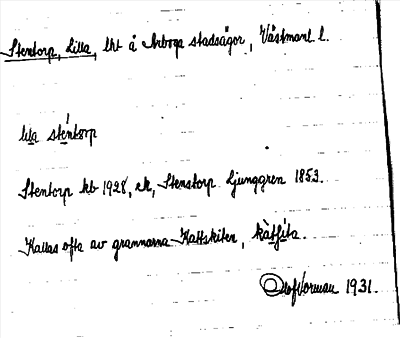 Stentorp, Lilla, lht å Arboga stadsägor, Västmanl. l.
lịla sténtorp
Stentorp kb 1928, ek, Stenstorp Ljunggren 1853.
Kallas ofta av grannarna Kattskiten, kàtʃita.
Olof Vorman 1931.